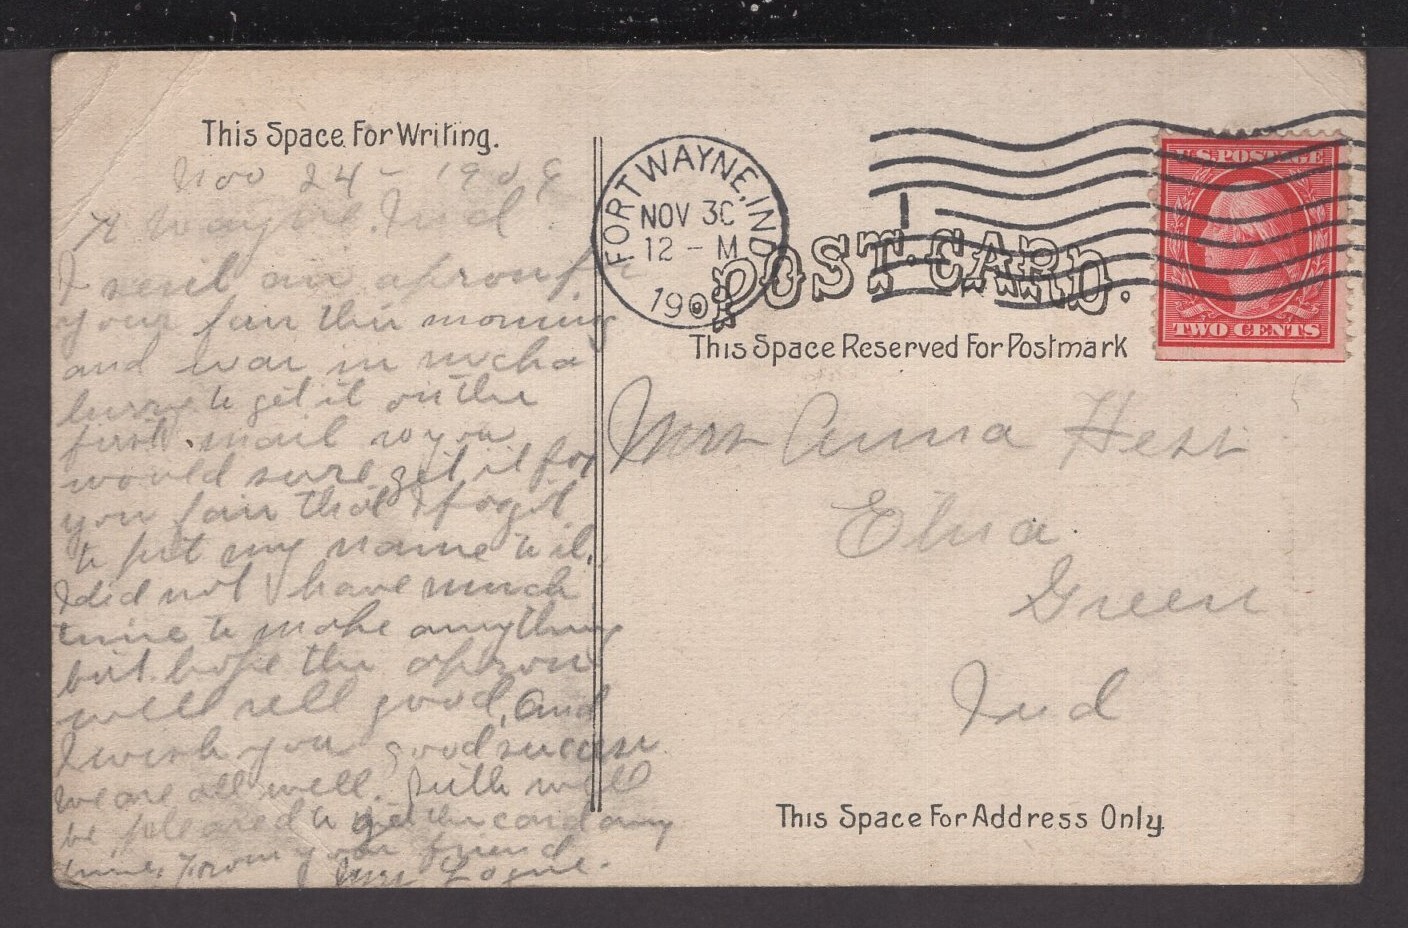 This Space For Writing.
Nov 24 - 190
Ft Wayne. Ind.
I sent an apron for
your fair this morning
and was in such a
hurry to get it on the
first mail so you
would sure get it for
you fair that I forgot
to put my name to it.
I did not have much
time to make anything
but hope the apron
will sell good, and
I wish you good sucess
We are all well. Ruth will
be pleased to get the card any
time, From your friend
Mrs
FORT WAYNE, IND
NOV 30
12 - M
190
1
U.S. POSTAGE
TWO CENTS
POST CARD.
This Space Reserved For Postmark
Mrs Anna Hess
Etna
Green
Ind
This Space For Address Only.